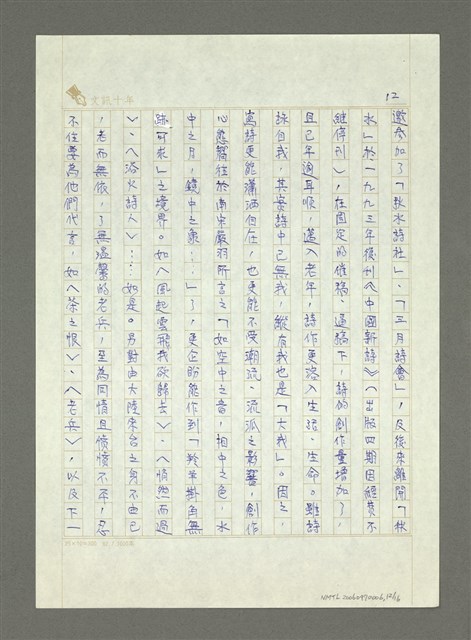 12
文訊十年
邀參加了「秋水詩社」、「三月詩會」，及後來離開「秋
水」於一九九三年復刊《中國新詩》（出版四期因經費不
繼停刊），在固定的催稿、逼稿下，詩的創作量增加了，
且已年逾耳順，邁入老年，詩作更落入生活、生命。雖詩
詠自我，其實詩中已無我，縱有我也是「大我」。因之，
寫詩更能瀟洒自在，也更能不受潮流、流派之影響，創作
心態嚮往於南宋嚴羽所言之「如空中之音，相中之色，水
中之月，鏡中之象……」了，更企盼能作到「羚羊掛角無
跡可求」之境界。如〈風起雲飛我欲歸去〉、〈悄然而過
〉、〈浴火詩人〉……如是。另對由大陸來台之身不由己
，老而無依，了無溫馨的老兵，至為同情且憤憤不平，忍
不住要為他們代言，如〈茶之恨〉、〈老兵〉，以及下一
NMTL 20060970006, 12/16